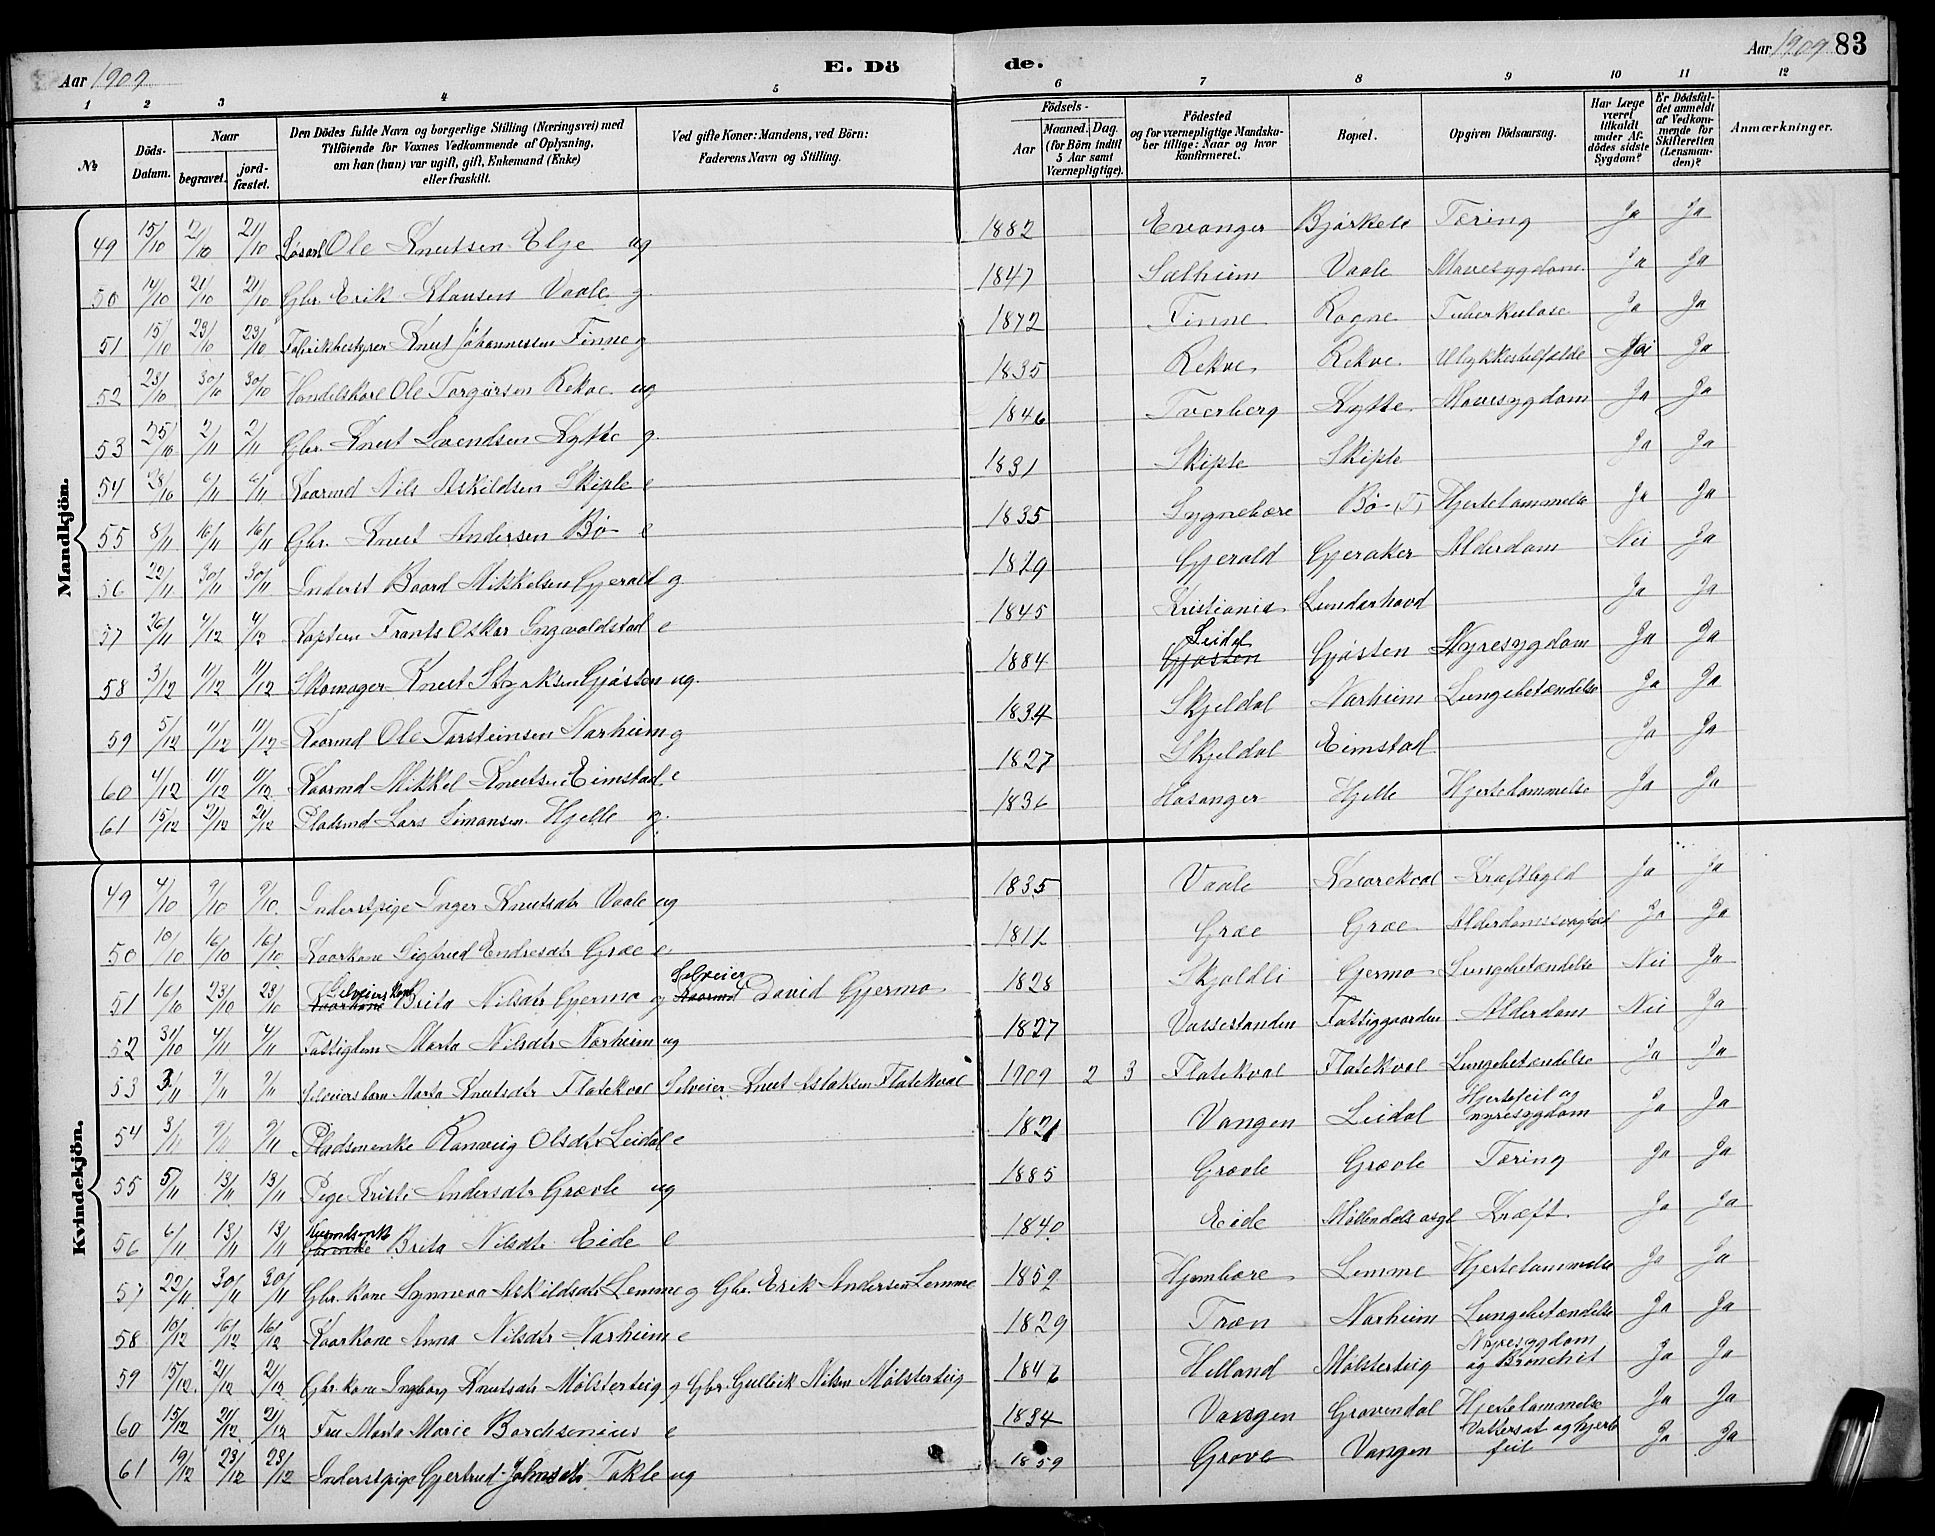 Aar 1909
E. Dö
de.
Aar 1909 83
1 2 3 4 5 6 7 8 9 10 11 12
№ Döds-Datum. Naar begravet. jord-fæstet. Den Dödes fulde Navn og borgerlige Stilling (Næringsvei) med Tilföiende for Voxnes Vedkommende af Oplysning, om han (hun) var ugift, gift, Enkemand (Enke) eller fraskilt. Ved gifte Koner: Mandens, ved Börn: Faderens Navn og Stilling. Födsels- Aar Maaned. Dag. (for Börn indtil 5 Aar samt Værnepligtige). Födested og for værnepligtige Mandskaber tillige: Naar og hvor konfirmeret. Bopæl. Opgiven Dödsaarsag. Har Læge været tilkaldt under Afdödes sidste Sygdom? Er Dödsfaldet anmeldt af Vedkommende for Skifteretten (Lensmanden)? Anmærkninger.
Mandkjön.
49 15/10 21/10 21/10 Løsarb Ole Knutsen Elje ug 1882 Evanger Bjørkeli Tæring Ja Ja
50 14/10 21/10 21/10 Gbr. Erik Klausen Vaale g. 1847 Sælheim Vaale Mavesygdom Ja Ja
51 15/10 23/10 23/10 Fabrikbestyrer Knut Johannessen Finne g 1872 Finne Rogne Tuberkulose Ja Ja
52 23/10 30/10 30/10 Handelskarl Ole Torgersen Rekve ug 1835 Rekve Rekve Ulykkestilfælde Ja
53 25/10 2/11 2/11 Gbr. Knut Svendsen Kytte g. 1846 Tverberg Kytte Mavesygdom Ja Ja
54 28/10 6/11 6/11 Kaarmd Nils Askildsen Skiple e 1831 Skiple Skiple Ja Ja
55 8/11 16/11 16/11 Gbr. Knut Andersen Bø e 1835 Sygnebere Bø (T) Hjertelammelse Ja Ja
56 22/11 30/11 30/11 Inderst Baard Mikkelsen Gjerald g 1829 Gjerald Gjeraker Alderdom Nei Ja
57 26/11 4/12 4/12 Kaptein Frants Oskar Ingvaldstad e 1845 Kristiania Lundarhaod Ja Ja
58 3/12 11/12 11/12 Skomager Knut Styrksen Gjøsten ug. 1884 Leidal Gjøsten Gjøsten Nyresygdom Ja Ja
59 5/12 11/12 11/12 Kaarmd Ole Torsteinsen Narheim g 1834 Skjeldal Narheim Lungebetændelse Ja Ja
60 4/12 11/12 11/12 Kaarmd Mikkel Knutsen Eimstad e 1827 Skjeldal Eimstad Ja Ja
61 15/12 21/12 21/12 Pladsmd Lars Simonsen Hjelle g. 1836 Hosanger Hjelle Hjertelammelse Ja Ja
Kvindekjön.
49 4/10 9/10 9/10 Inderstpige Inger Knutsdtr Vaale ug 1835 Vaale Kræftbyld Ja Ja
50 10/10 16/10 16/10 Kaarkone Sigtrud Endresdtr Græe e 1811 Græe Græe Alderdomssvaghed Ja Ja
51 16/10 23/10 23/10 Selveierkone Kaarkone Brita Nilsdtr Gjermo g Selveier Kaarmd David Gjermo 1828 Skjoldli Gjermo Lungebetændelse Nei Ja
52 31/10 4/11 4/11 Fattiglem Marta Nilsdtr Narheim ug 1827 Vossestanden Fattiggaarden Alderdom Nei Ja
53 3/11 9/11 9/11 Selveiersbarn Marta Knutsdtr Flatekval Selveier Knut Aslaksen Flatekval 1909 2 3 Flatekval Flatekval Lungebetændelse Ja Ja
54 3/11 9/11 9/11 Pladsmenke Ranveig Olsdtr Leidal e 1821 Vangen Leidal Hjertefeil og nyresygdom Ja Ja
55 5/11 13/11 13/11 Pige Kristi Andersdtr Grævle ug 1885 Grævle Grævle Tæring Ja Ja
56 6/11 13/11 13/11 Brita Nilsdtr Eide e 1840 Eide Møllendals asyl Kræft. Ja Ja
57 22/11 30/11 30/11 Gbr. kone Synneva Askildsdtr Lemme g Gbr. Erik Andersen Lemme 1859 Hjembore Lemme Hjertelammelse Ja Ja
58 10/12 16/12 16/12 Kaarkone Anna Nilsdtr Narheim e 1829 Træn Narheim Lungebetændelse Ja Ja
59 15/12 21/12 21/12 Gbr. kone Ingborg Knutsdtr Mølsterteig g Gbr. Gulleik Nilsen Mølsterteig 1847 Helland Mølsterteig Nyresygdom og Bronchit Ja Ja
60 15/12 21/12 21/12 Fru Marta Marie Borchsenius e 1834 Vangen Grovendal Hjertelammelse Ja Ja
61 19/12 23/12 23/12 Inderstpige Gjertrud Johnsdtr Takle ug 1859 Grove Vangen Vattersot og hjertefeil Ja Ja